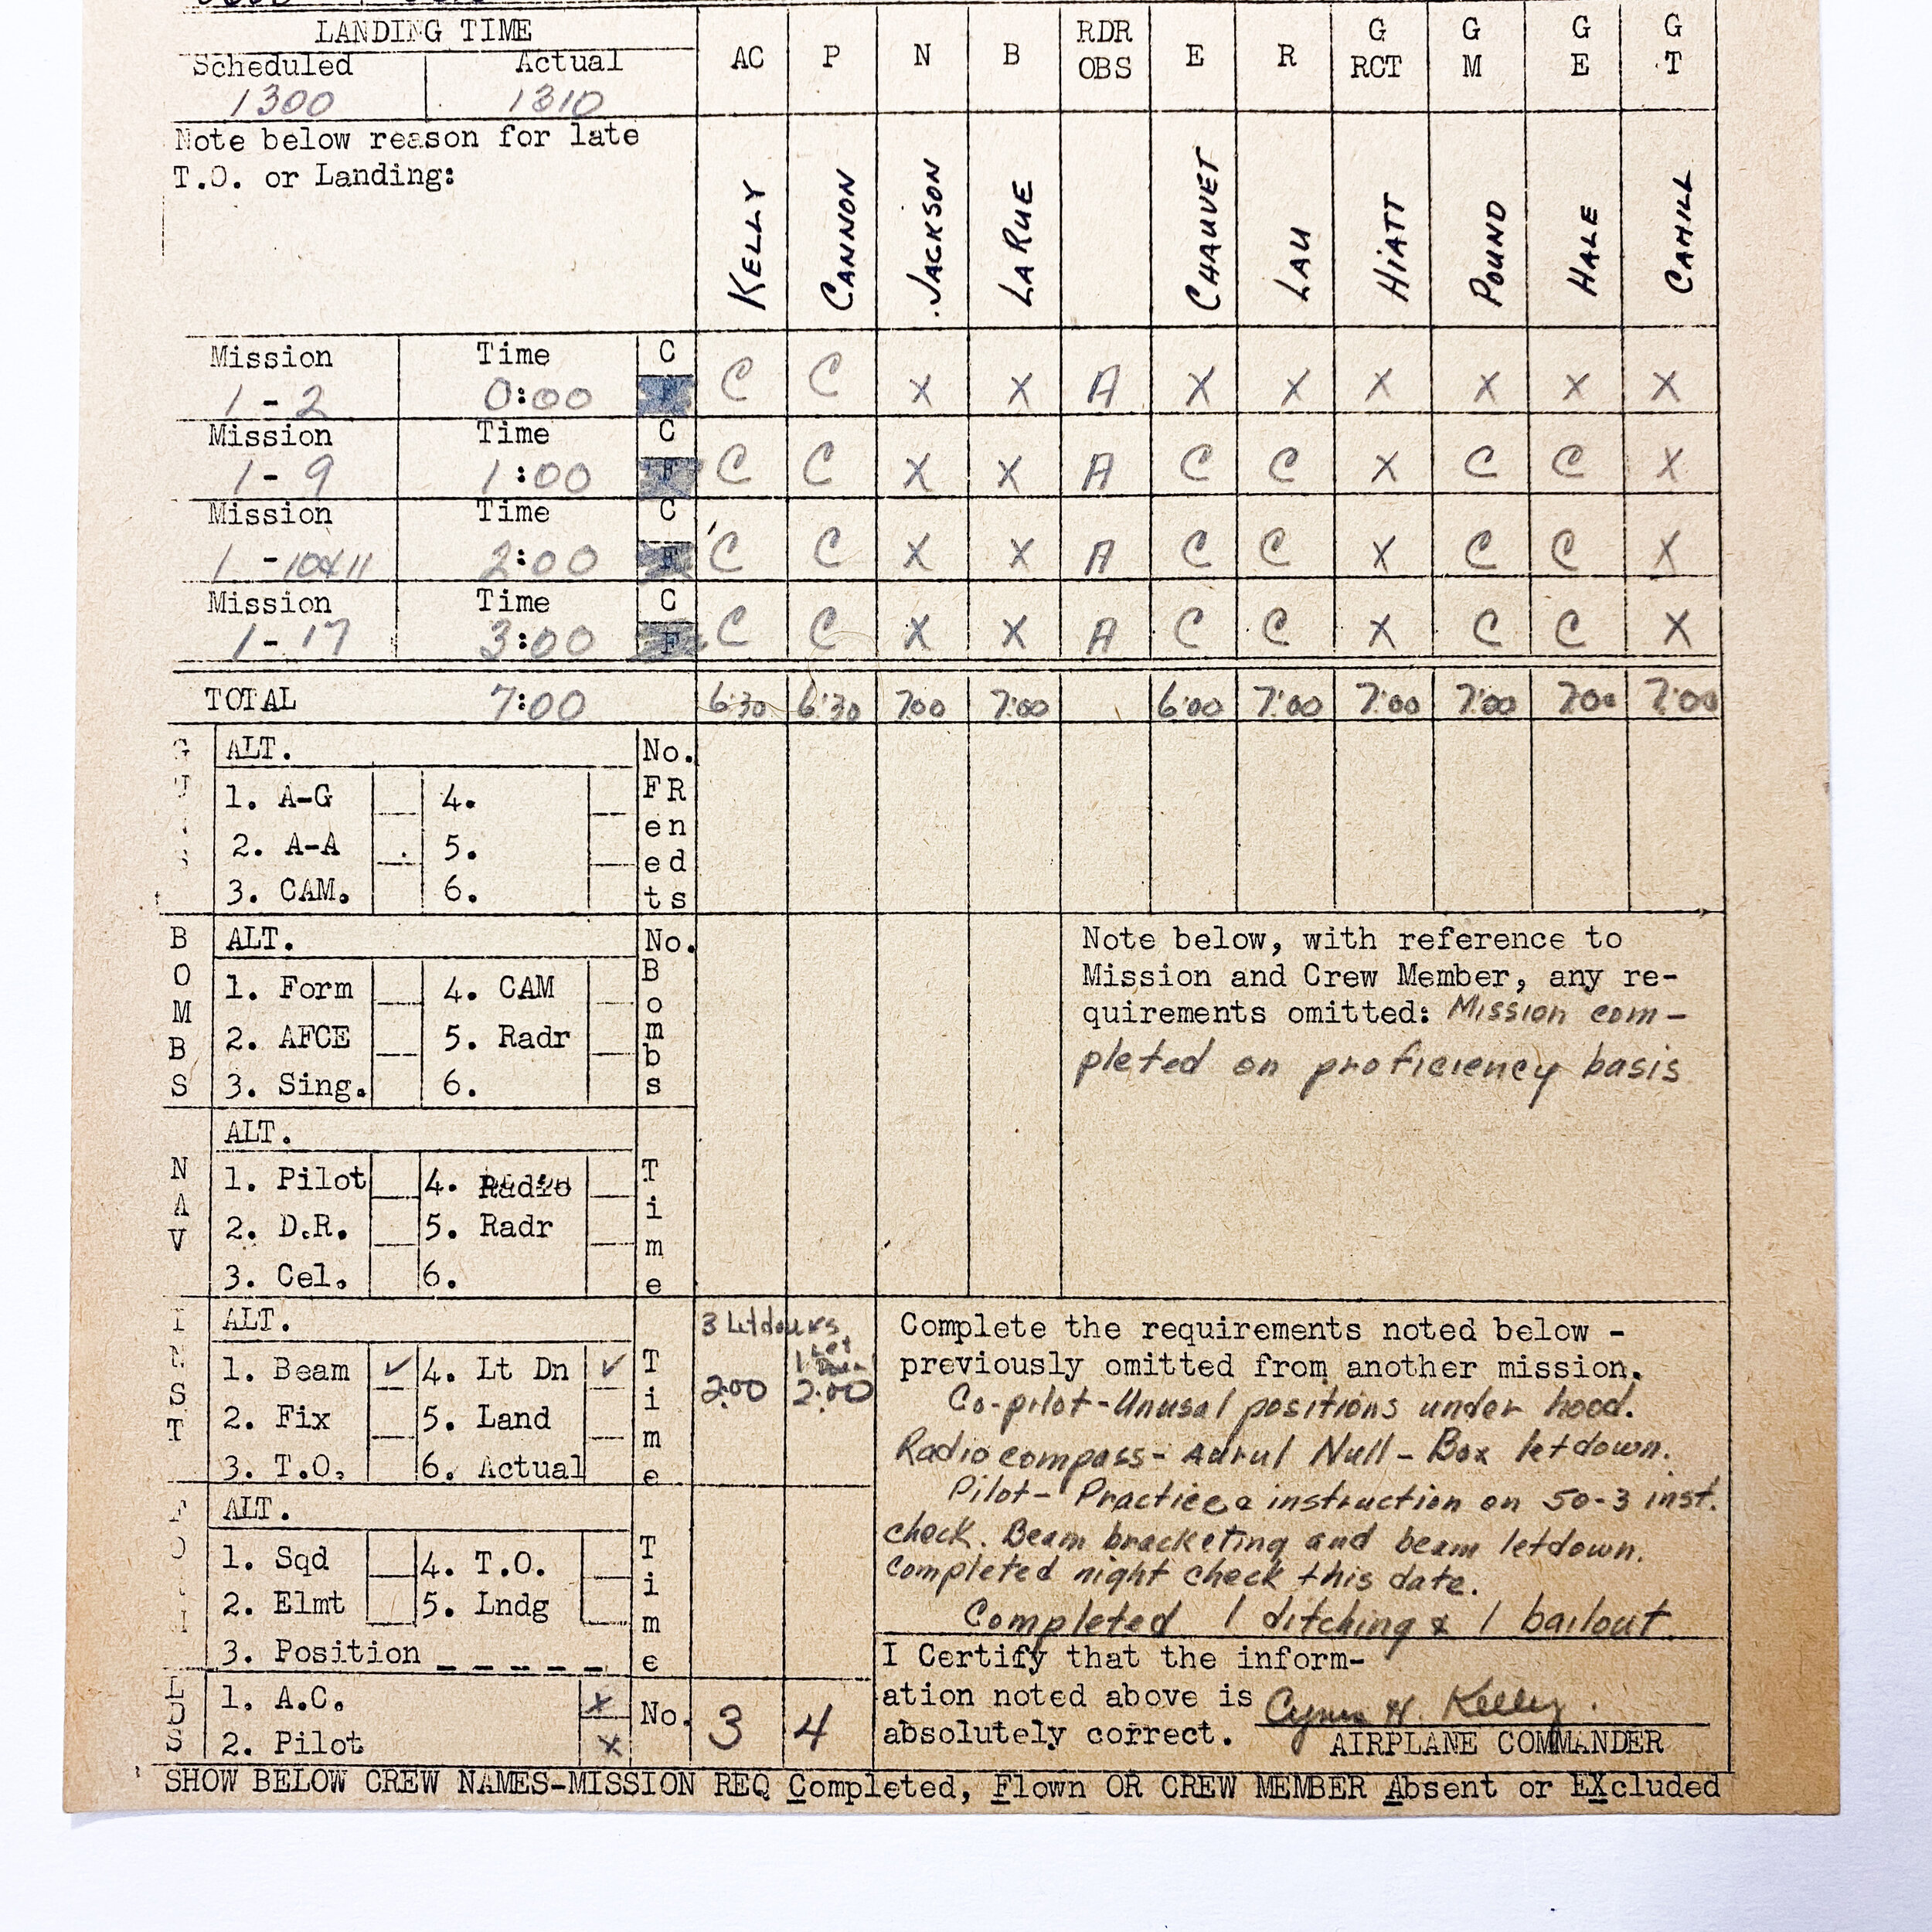 LANDING TIME
Scheduled Actual
1300 1310
AC P N B RDR OBS E R G RCT G M G E G T
Note below reason for late
T.O. or Landing:
KELLY CANNON JACKSON LARUE CHAUVET LAU HIATT POUND HALE CAHILL
Mission Time C
1-2 0:00 F C C X X A X X X X X X
Mission Time C
1-9 1:00 F C C X X A C C X C C X
Mission Time C
1-10&11 2:00 F C C X X A C C X C C X
Mission Time C
1-17 3:00 F C C X X A C C X C C X
TOTAL 7:00 6:30 6:30 7:00 7:00 6:00 7:00 7:00 7:00 7:00 7:00
ALT. No.
1. A-G 4. FR
2. A-A 5. en
ed
3. CAM. 6. ts
BOMBS
ALT. No.
Bombs
1. Form 4. CAM
2. AFCE 5. Radr
3. Sing. 6.
Note below, with reference to
Mission and Crew Member, any re-
quirements omitted: Mission com-
pleted on proficiency basis
NAV
ALT.
Time
1. Pilot 4. Radio
2. D.R. 5. Radr
3. Cel. 6.
INST
ALT. 3 letdowns
Time
1. Beam ✓ 4. Lt Dn ✓ 1 Let Down
2:00 2:00
2. Fix 5. Land
3. T.O. 6. Actual
Complete the requirements noted below -
previously omitted from another mission.
Co-pilot-Unusal positions under hood.
Radio compass- Aurul Null - Box letdown.
Pilot- Practice & instruction on 50-3 inst.
check. Beam bracketing and beam letdown.
completed night check this date.
Completed 1 ditching & 1 bailout.
ALT.
Time
1. Sqd 4. T.O.
2. Elmt 5. Lndg
3. Position _ _ _ _ _
1. A.C. X
2. Pilot X
No. 3 4
I Certify that the inform-
ation noted above is Cyrus H. Kelly.
absolutely correct. AIRPLANE COMMANDER
SHOW BELOW CREW NAMES-MISSION REQ Completed, Flown OR CREW MEMBER Absent or EXcluded